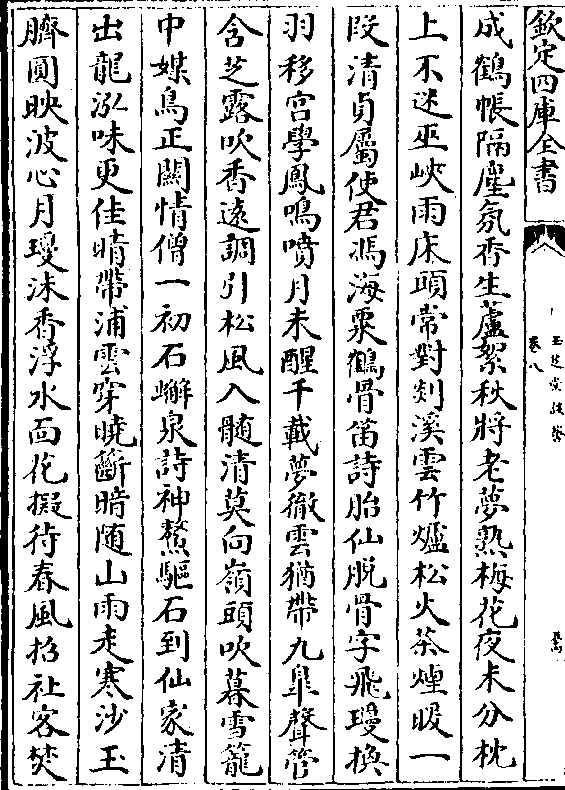 欽定四庫全書
卷八
成鶴帳隔塵氛香生蘆絮秋將老夢熟梅花夜未分枕
上不迷巫峽雨床頭常對剡溪雲竹爐松火茶煙暖一
段清貞屬使君馮海粟鶴骨笛詩胎仙脱骨字飛瓊換
羽移宮學鳳鳴噴月未醒千載夢徹雲猶帶九臯聲管
含芝露吹香逺調引松風入髓清莫向嶺頭吹暮雪籠
中媒鳥正關情僧一初石蠏泉詩神鰲驅石到仙家清
出龍泓味更佳晴帶浦雲穿曉斷暗随山雨走寒沙玉
臍圓映波心月瓊沫香浮水面花擬待春風招社客焚